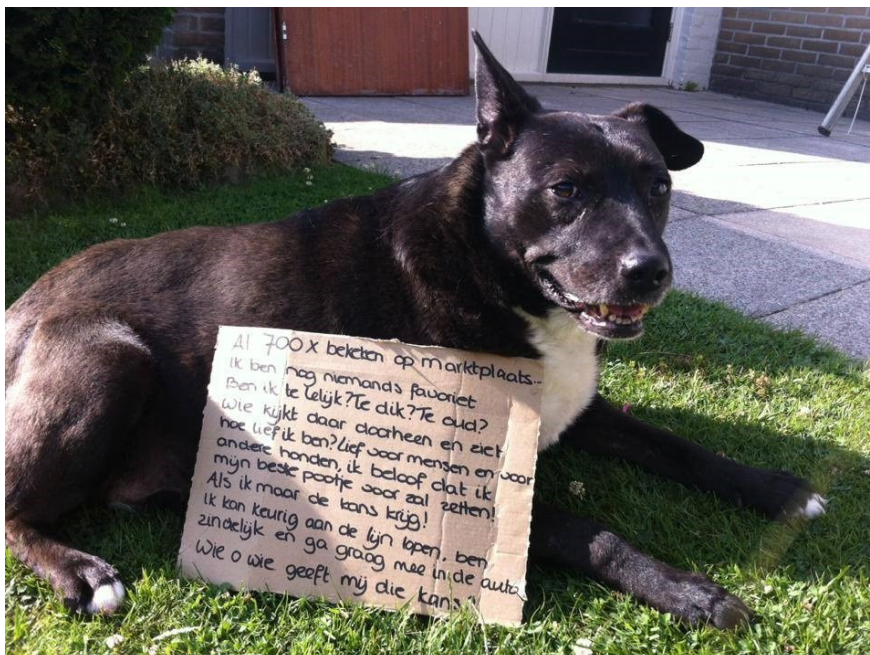 Al 700 x bekeken op marktplaats...
Ik ben nog niemands favoriet
Ben ik te lelijk? Te dik? Te oud?
Wie kijkt daar doorheen en ziet
hoe lief ik ben? Lief voor mensen en voor
andere honden, ik beloof dat ik
mijn beste pootje voor zal zetten!
Als ik maar de kans krijg!
Ik kan keurig aan de lijn lopen, ben
zindelijk en ga graag mee in de auto
Wie o wie geeft mij die kans?